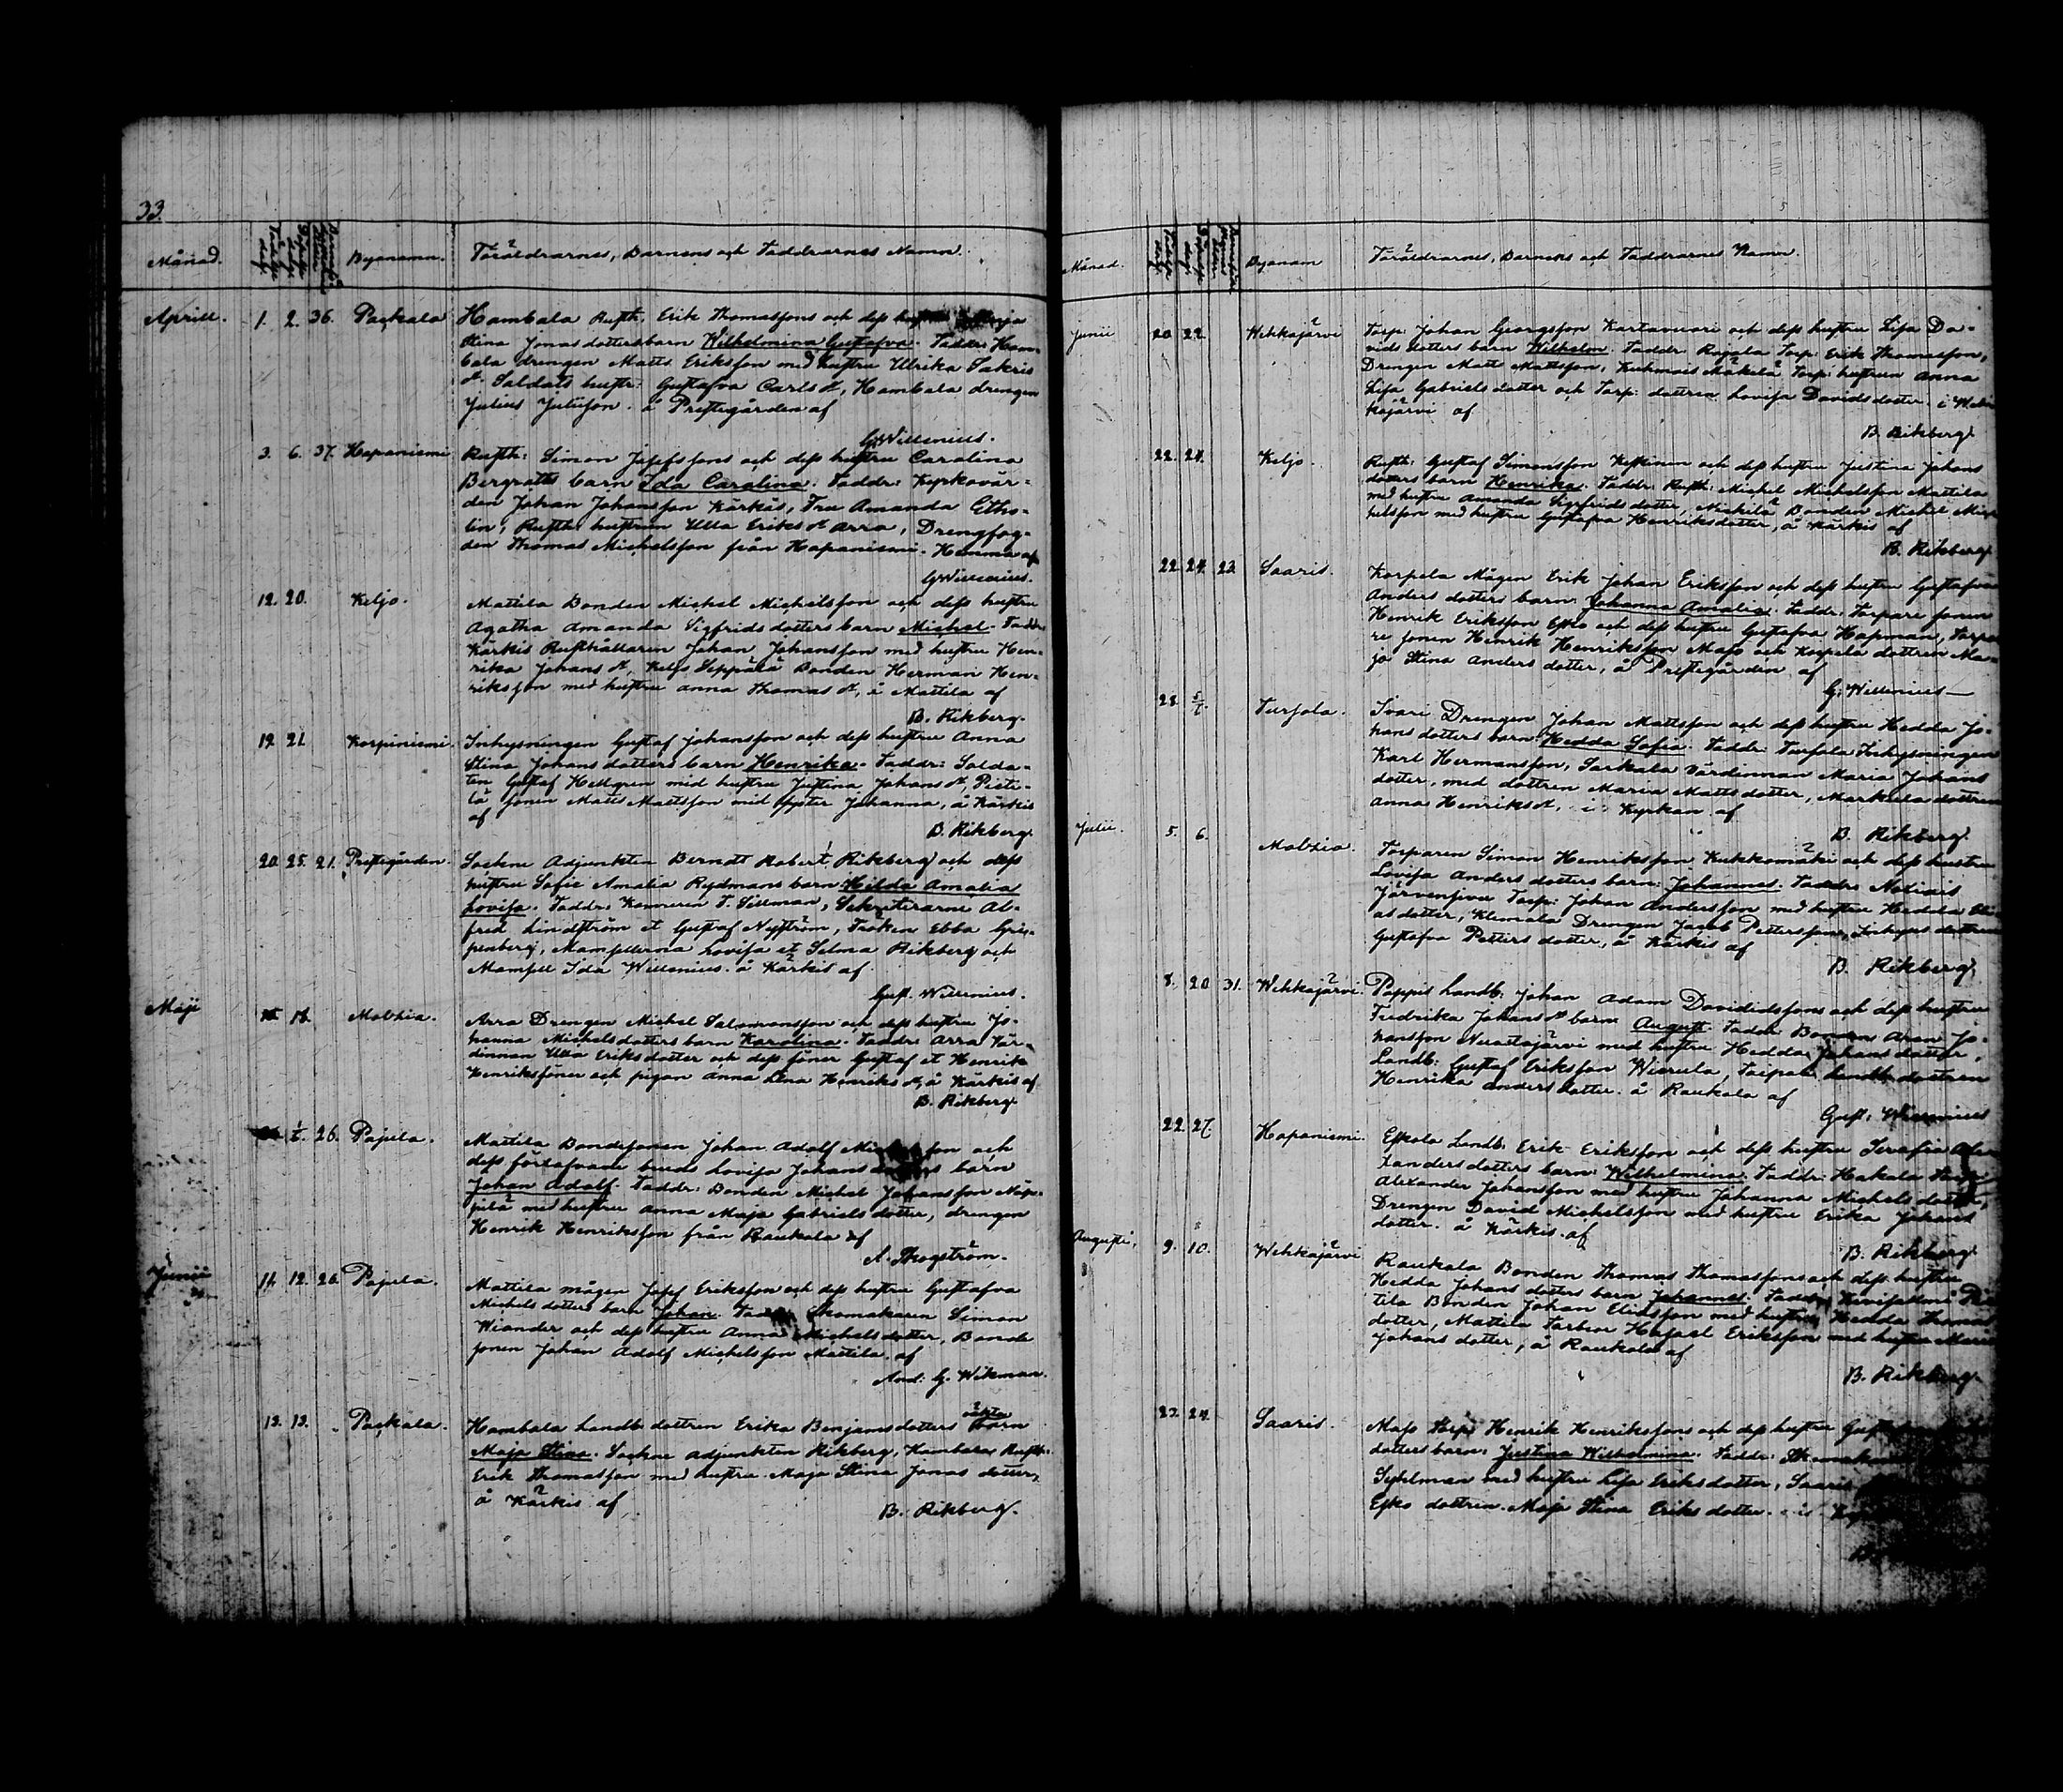 33.
Månad. Födelse dag. Döpelse dag. Byanamn. Föräldrarnes, Barnens och Faddrarnes Namn.
Aprill. 1. 2. 36. Packala Hambala Rusth. Erik Thomassons och dess Maja
Stina Jonasdotters barn Wilhelmina Gustafva. Faddr: Ham-
bala drengen Matts Eriksson med hustru Ulrika Sakris
dr. Soldats hustr: Gustafva Carls dr, Hambala drengen
Julius Juliison. å Prestegården af
G. Willenius.
3. 6. 37. Hapaniemi Rusth: Simon Josefssons och dess hustru Carolina
Bergroths barn Ida Carolina. Faddr: Kyrkovär-
den Johan Johansson Kärkis, Fru Amanda Etho-
lin, Rusth: hustrun Ulla Eriks dr Arra, Drengfog-
den Thomas Michelsson från Hapaniemi. Hemma af
G. Willenius.
12. 20. Keljo. Mattila Bonden Michel Michelsson och dess hustru
Agatha Amanda Sigfridsdotters barn Michel. Faddr:
Kärkis Rusthållaren Johan Johansson med hustru Hen-
rika Johans dr, Keljo Seppälä Bonden Herman Hen-
riksson med hustru Anna Thomas dr, i Mattila af
B. Rikberg.
19. 21. Korpiniemi. Inhysningen Gustaf Johansson och dess hustru Anna
Stina Johansdotters barn Henrika. Faddr: Solda-
ten Gustaf Hellgren med hustru Justina Johans dr, Pieti-
lä sonen Matts Mattsson med syster Johanna, å Kärkis
af
B. Rikberg.
20. 25. 21. Prestegården. Sockne Adjunkten Berndt Robert Rikberg och dess
hustru Sofie Amalia Rydmans barn Hilda Amalia
Lovisa. Faddr: Kamrerin F. Sillman, Sekreterarne Al-
fred Lindström et Gustaf Nyström, Fröken Ebba Gri-
penberg, Mamsellerna Lovisa et Selma Rikberg och
Mamsell Ida Willenius. å Kärkis af
Gust. Willenius.
Maji 18. Maltzia. Arra Drengen Michel Salomonsson och dess hustru Jo-
hanna Michelsdotters barn Karolina. Faddr: Arra Vär-
dinnan Ulla Eriksdotter och dess söner Gustaf et Henrik
Henrikssöner och pigan Anna Lena Henriks dr, å Kärkis af
B. Rikberg
1/6. 26. Pajula. Mattila Bondesonen Johan Adolf och
dess förlofvade bruds Lovisa Johans barn
Johan Adolf. Faddr: Bonden Michel Johansson Näp-
pilä med hustru Anna Maja Gabriels dotter, drengen
Henrik Henriksson från Raukola af
A. Skogström.
Junii 11. 12. 26. Pajula. Mattila mågen Josef Eriksson och dess hustru Gustafva
Michels dotters barn Johan. Skomakaren Simon
Wiander och dess hustru Anna Michelsdotter, Bonde
sonen Johan Adolf Michelsson Mattila. af
And: G. Wikman.
12. 13. Packala. Hambala Landb: dottren Erika Benjamsdotters oäkta barn
Maja Stina. Sockne adjunkten Rikberg, Hambala Rusth:
Erik Thomasson med hustru Maja Stina Jonas dotter,
å Kärkis af
B. Rikberg.
Månad. Byanam Föräldrarnes, Barnens och Faddrarnes Namn.
Junii 20. 22. Wehkajärvi Torp: Johan Georgsson Kartanuori och dess hustru Lisa Da-
vids dotters barn Wilhelm. Faddr: Rajala Torp: Erik Thomasson,
Drengen Matts Mattsson, Kuhmois Mäkelä Torp: hustrun Anna
Lisa Gabriels dotter och Torp: dottren Lovisa Davidsdotter. i Weh-
kajärvi af
B. Rikberg.
22. 24. Keljo. Rusth: Gustaf Simonsson Keskinen och dess hustru Justina Johans
dotters barn Henrika. Faddr: Rusth: Michel Michelsson Mattila
med hustru Amanda Sigfridsdotter, Bonden Michel Mich-
helsson med hustru Gustafva Henriksdotter, å Kärkis af
B. Rikberg
22. 24. 23. Saaris. Korpela Mågen Erik Johan Eriksson och dess hustru Gustafva
Anders dotters barn Johanna Amalia. Faddr: Torpare sonen
Henrik Eriksson Esko och dess hustru Gustafva Hapman, Torpa-
re sonen Henrik Henriksson Mass och Korpela dottren Ma-
ja Stina Anders dotter, å Prestegården af
G. Willenius
28. 5/7. Tursola. Ivari Drengen Johan Mattsson och dess hustru Hedda Jo-
hans dotters barn: Hedda Sofia. Faddr: Tursola Inhysningen
Karl Hermansson, Sarkala Värdinnan Maria Johans
dotter, med dottren Maria Matts dotter, Markula dottren
Anna Henriks dr, i Kyrkan af
B. Rikberg.
Julii. 5. 6. Maltzia. Torparen Simon Henriksson Kukkomäki och dess hustru
Lovisa Anders dotters barn: Johannes. Faddr:
Torp: Johan Andersson med hustru Hedda Eli-
as dotter, Klemola Drengen Jacob Pettersson, Inhyses dottren
Gustafva Petters dotter, å Kärkis af
B. Rikberg.
8. 20. 31. Wehkajärvi. Pappis Landb: Johan Adam Davidssons och dess hustru
Fredrika Johans dr barn August. Faddr: Bonden Aran Jo-
hansson med hustru Hedda Johans dotter,
Landb: Gustaf Eriksson Wierula, dottren
Henrika Andersdotter. å Raukola af
Gust: Willenius
22. 27. Hapaniemi. Eskola Landb: Erik Eriksson och dess hustru Serafia Alex-
xanders dotters barn: Wilhelmina. Faddr: Hakala
Alexander Johansson med hustru Johanna Michels dotter,
Drengen David Michelsson med hustru Erika Johans
dotter. å Kärkis af
B. Rikberg
Augusti. 9. 10. Wehkajärvi Raukola Bonden Thomas Thomassons och dess hustru
Hedda Johans dotters barn Johannes. Faddr:
Bonden Johan Eliasson med hustru Hedda Thomas
dotter, Mattila Eriksson med hustru Maria
Johans dotter, å Raukola af
B. Rikberg.
22. 24. Saaris. Mass Torp: Henrik Henrikssons och dess hustru
dotters barn: Justina Wilhelmina. Faddr:
Syhlman med hustru Lisa Eriks dotter, Saaris
Esko dottren Maja Stina Eriks dotter. i